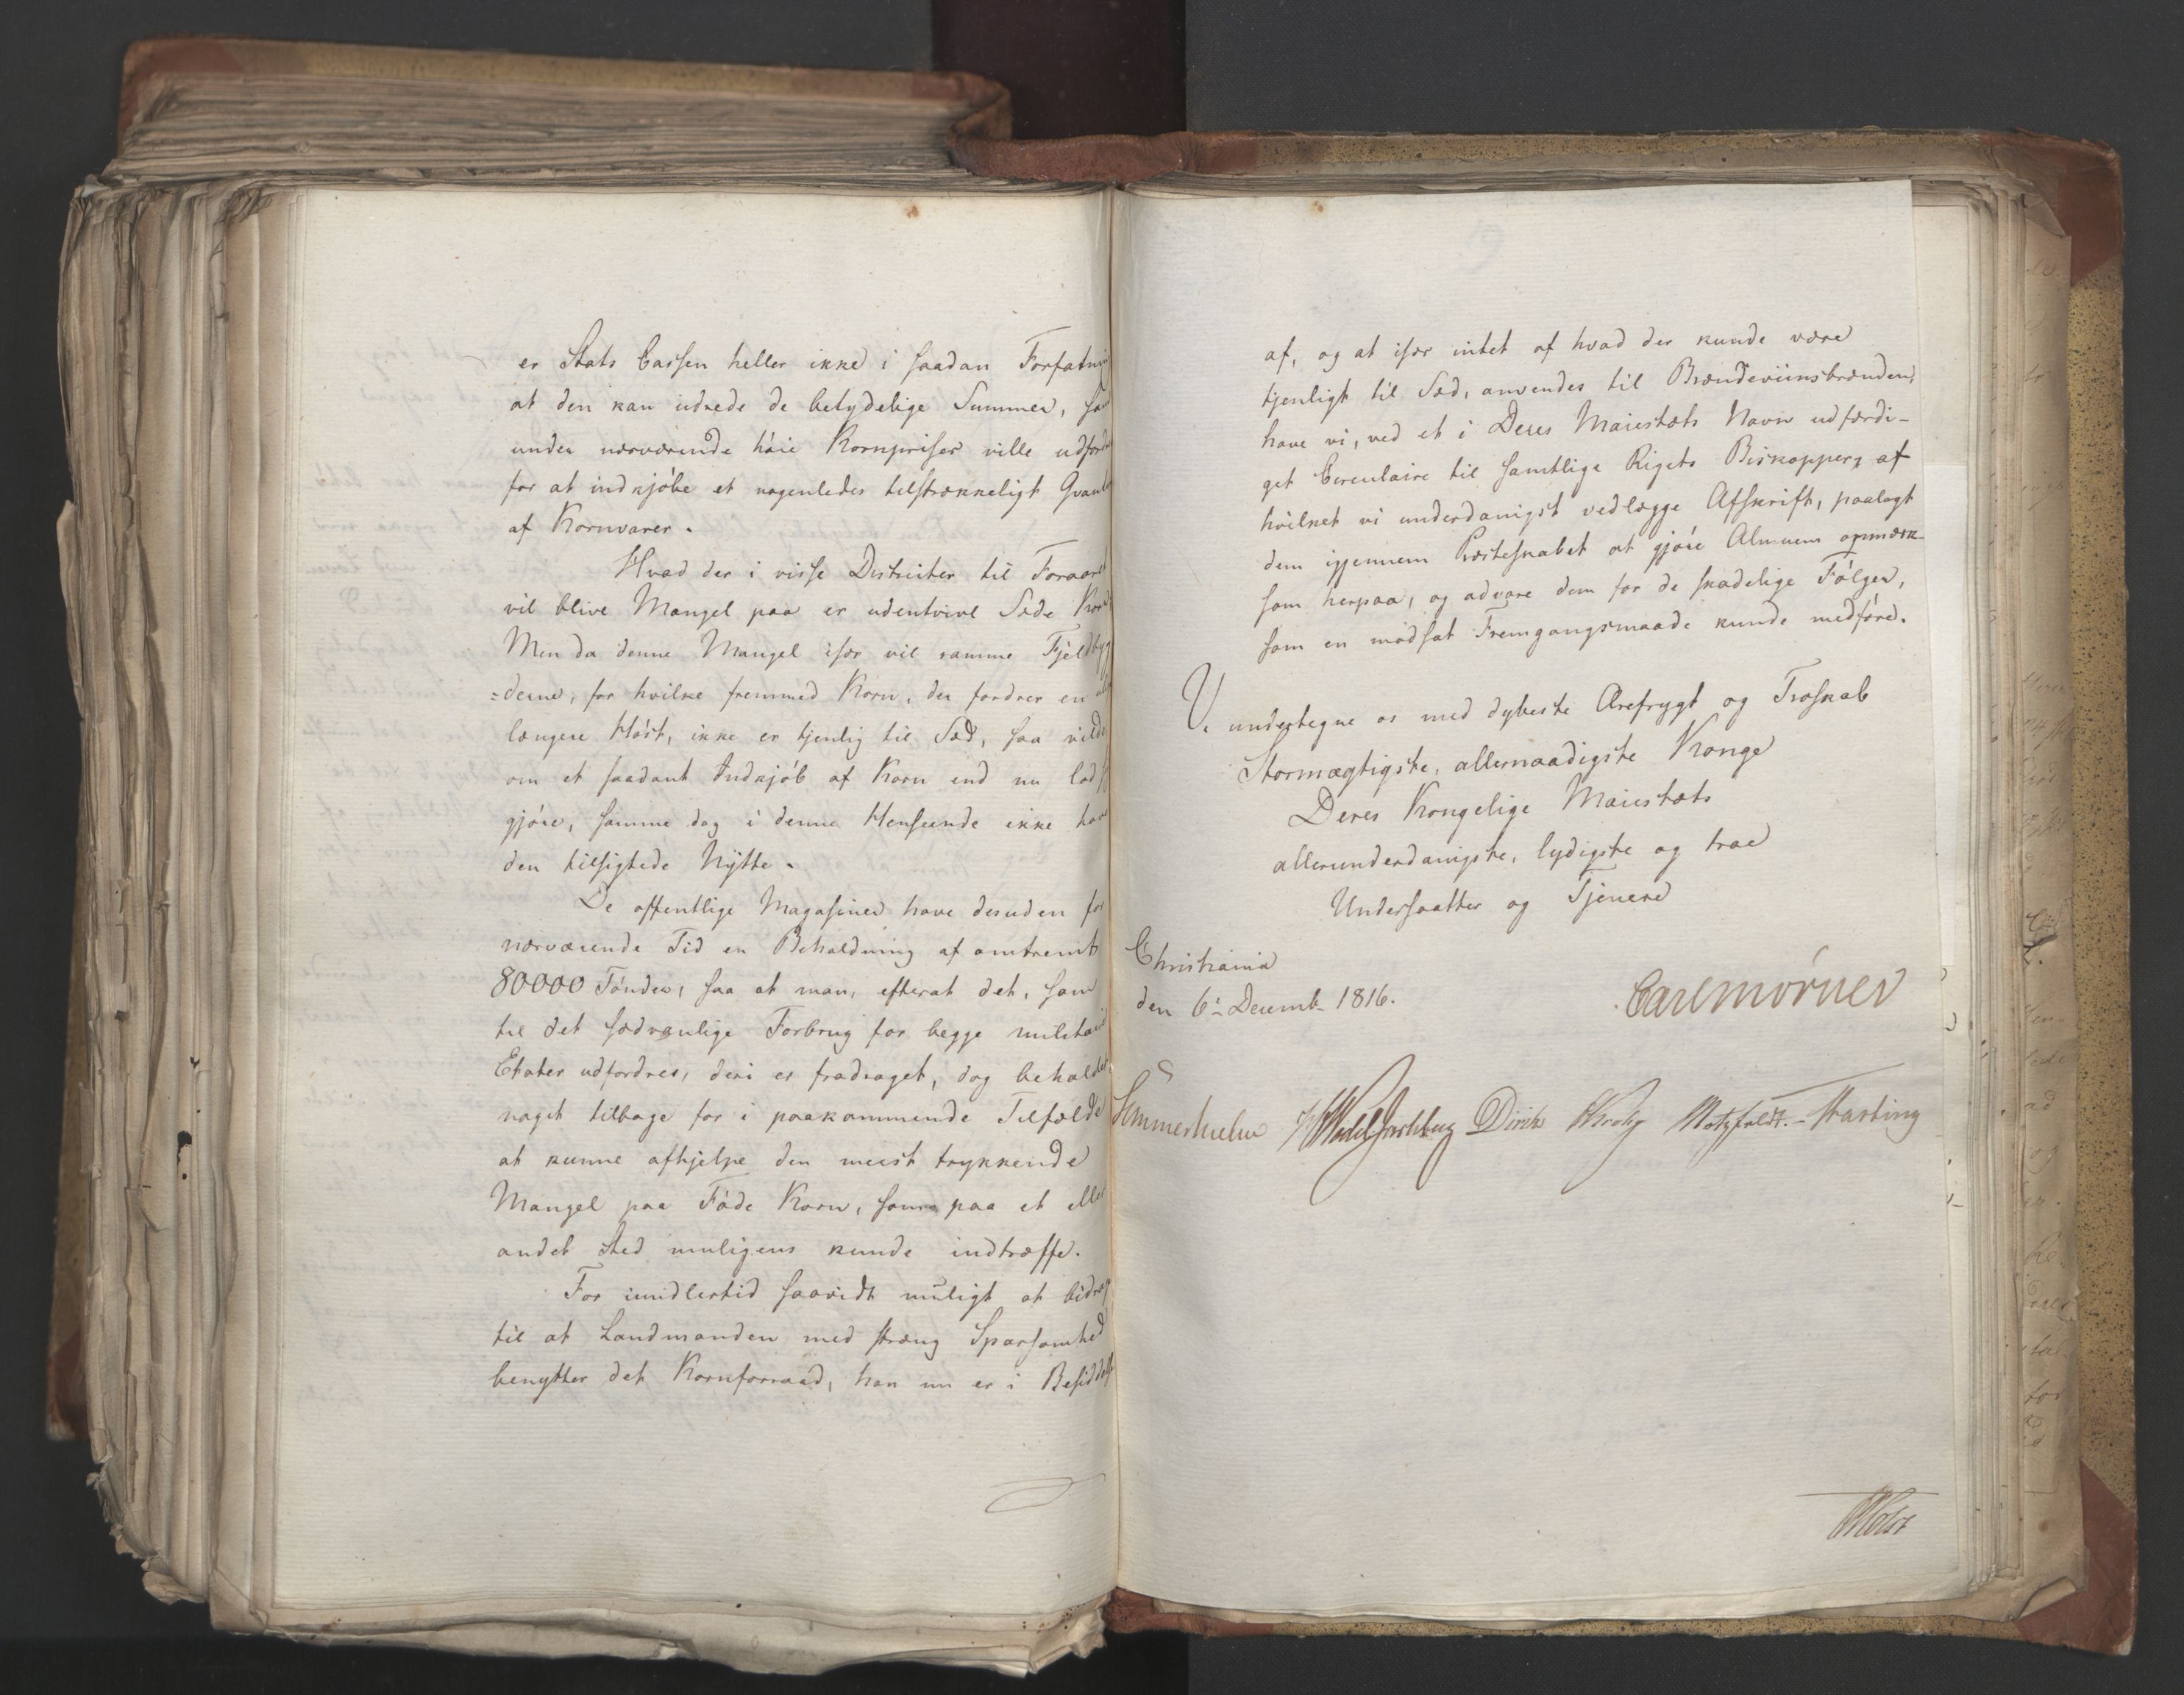 er Stats Cassen heller ikke i saadan Forfatni
at den kan udrede de betydelige Summer, som
under nærværende høie Kornpriser ville udford
for at indkjøbe et nogenledes tilstrækkeligt Qvant
af Kornvarer.
Hvad der i visse Districter til Foraaret
vil blive Mangel paa er udentvivl Sæde Korn
Men da denne Mangel især vil ramme Fjeldbyg
=derne, for hvilke fremmed Korn, der fordrer en
længere Høst, ikke er tjenlig til Sæd, saa vilde
om et saadant Indkjøb af Korn end nu lod sig
gjøre, samme dog i denne Henseende ikke have
den tilsigtede Nytte.
De offentlige Magasiner have desuden for
nærværende Tid en Beholdning af omtrent
80000 Tønder, saa at man, efterat det, som
til det sædvanlige Forbrug for begge militair
Etater udfordres, deri er fradraget, dog beholder
noget tilbage for i paakommende Tilfælde
at kunne afhjelpe den meest trykkende
Mangel paa Føde Korn, som paa et eller
andet Sted muligens kunde indtræffe.
For imidlertid saavidt muligt at bidrage
til at Landmanden med stræng Sparsomhed
benytter det Kornforraad, han nu er i Besiddelse
af, og at især intet af hvad der kunde være
tjenligt til Sæd, anvendes til Brændeviinsbrænden,
have vi, ved et i Deres Maiestæts Navn udfærdi-
get Circulaire til samtlige Rigets Biskopper, af
hvilket vi underdanigst vedlægge Afskrift, paalagt
dem igjennem Præsteskabet at gjøre Almuen opmærk-
som herpaa, og advare dem for de skadelige Følger,
som en modsat Fremgangsmaade kunde medføre.
Vi undertegne os med dybeste Ærefrygt og Troskab
Stormægtigste, allernaadigste Konge
Deres Kongelige Maiestæts
allerunderdanigste, lydigste og troe
Undersaatter og Tjenere
Christiania
den 6te Decemb. 1816.
Carl Mörner
Sommerhielm HWedel Jarlsberg Diriks Krohg Motzfeldt. Fasting
Holst